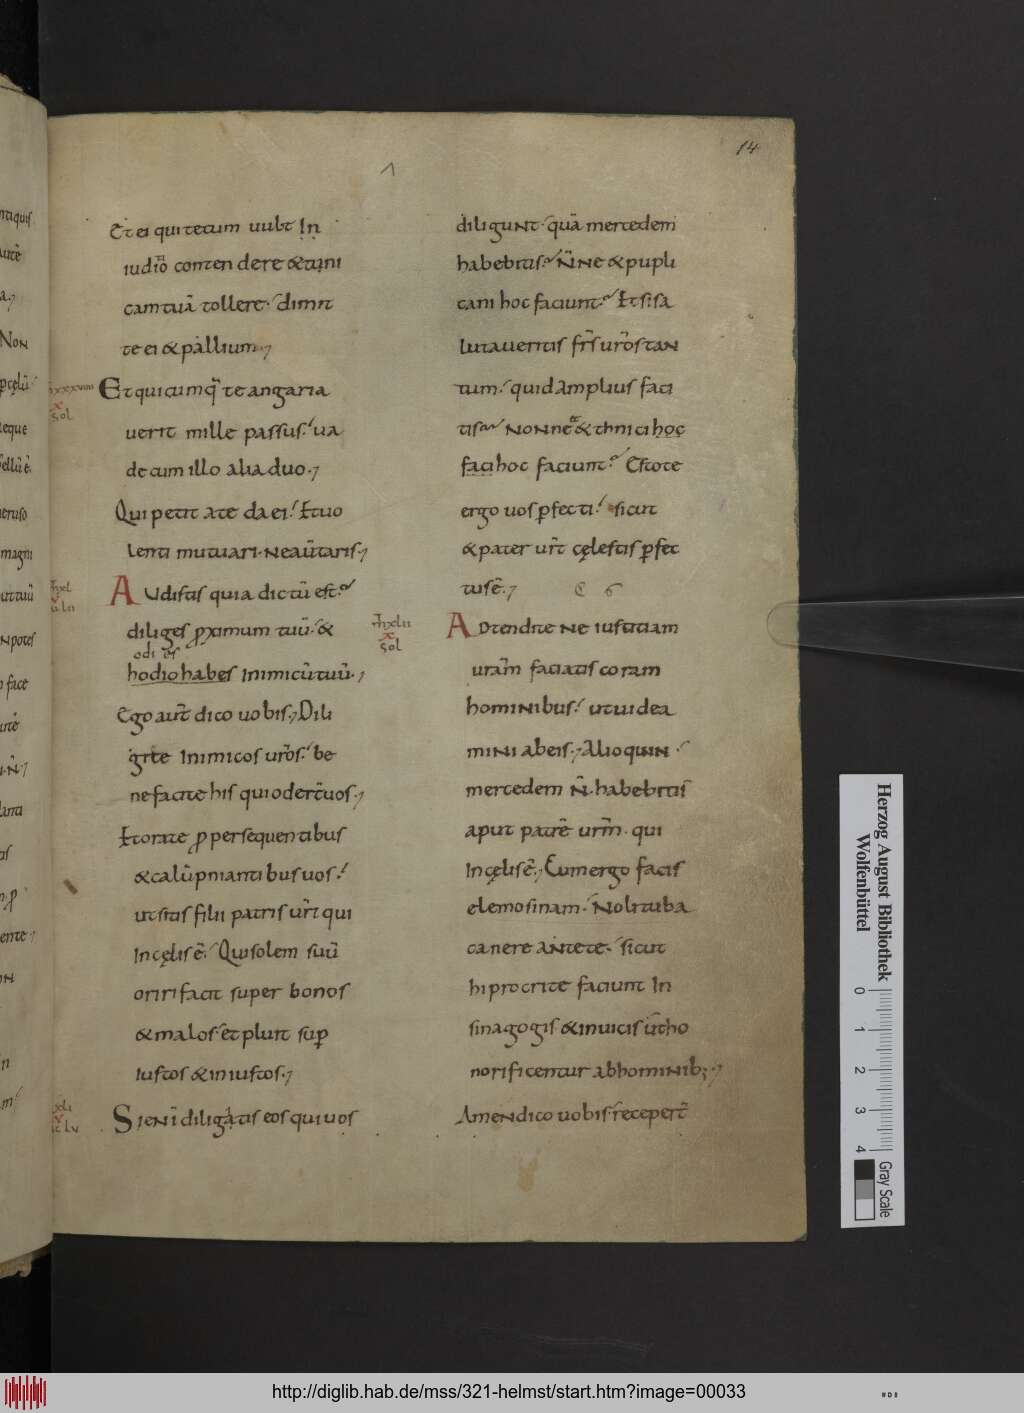 14
Et ei qui tecum uult In
iudiō contendere & tuni
cam tuā tollere. dimit
te ei & pallium.
Et quicumq̄ te angaria
uerit mille passus. ua
de cum illo alia duo.
Qui petit a te da ei. Et uo
lenti mutuari. ne au̅taris.
AUdistis quia dictū est.
diliges ꝓximum tuū. &
odi os
hodio habes Inimicū tuū.
Ego aut̄ dico uobis. Dili
gite Inimicos ur̄os. be
nefacite his qui oder̄t uos.
Et orate ꝓ persequentibus
& calūpniantibus uos.
ut sitis filii patris ur̄i qui
In cęlis ē. Qui solem suū
oriri facit super bonos
& malos. et pluit suꝑ
iustos & in iustos.
Si eni̅ diligatis eos qui uos
xl
xlii
x
sol
diligunt. quā mercedem
habebitis. N̄ne & pupli
cani hoc faciunt. Et si sa
lutaueritis fr̄s ur̄os tan
tum. quid amplius faci
tis. Nonne & ethnici hoc
faci hoc faciunt. Estote
ergo uos ꝑfecti. sicut
& pater ur̄ cęlestis ꝑfec
tus ē.
C 6
Adtendite ne iustitiam
uram̄ faciatis coram
hominibus. ut uidea
mini ab eis. Alioquin
mercedem n̄ habebitis
aput patrē urm̄. qui
In cęlis ē. Cum ergo facis
elemosinam. Noli tuba
canere ante te. sicut
hipocrite faciunt In
sinagogis & in uicis ut ho
norificentur ab hominib;
Amen dico uobis. recepert̄
Herzog August Bibliothek
Wolfenbüttel
0 1 2 3 4
Gray Scale
http://diglib.hab.de/mss/321-helmst/start.htm?image=00033